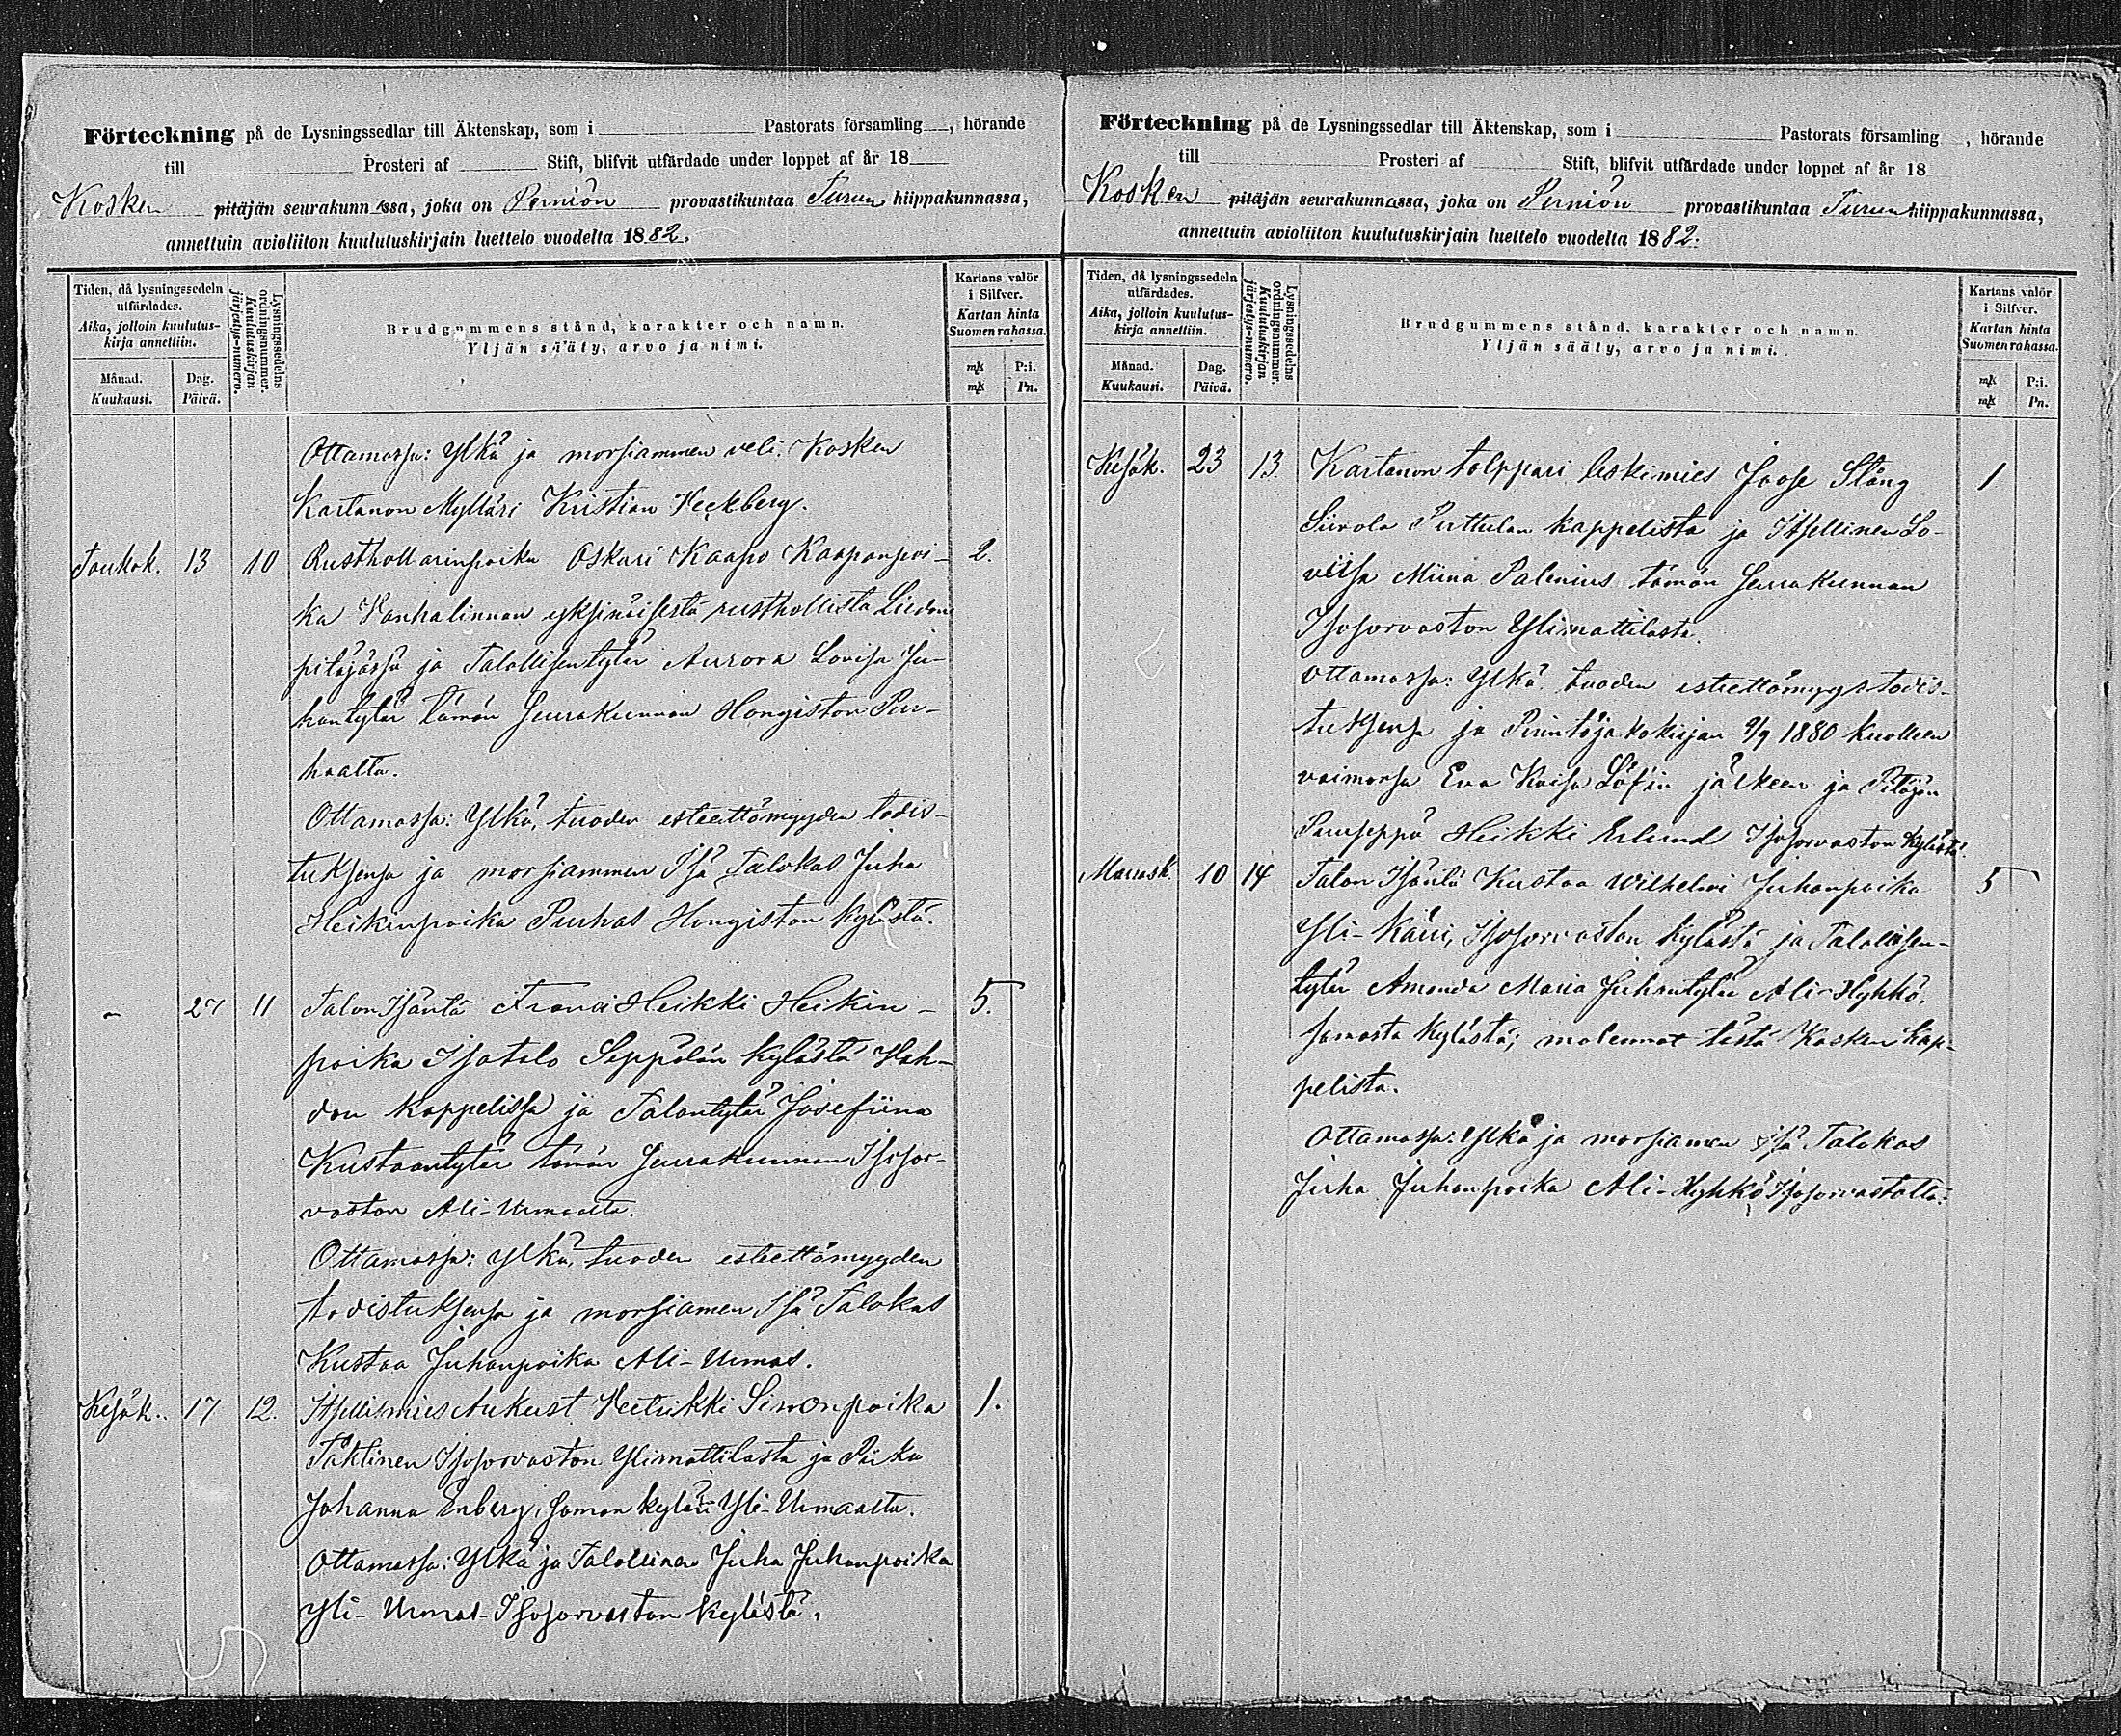 Förteckning på de Lysningssedlar till Äktenskap, som i Pastorats församling, hörande
till Prosteri af Stift, blifvit utfärdade under loppet af år 18
Kosken pitäjän seurakunnassa, joka on Perniön provastikuntaa Turun hiippakunnassa,
annettuin avioliiton kuulutuskirjain luettelo vuodelta 1882.
Tiden, då lysningssedeln utfärdades.
Aika, jolloin kuulutuskirja annettiin.
Månad. Kuukausi.
Dag. Päivä.
Lysningssedelns ordningsnummer.
Kuulutuskirjan järjestys-numero.
Brudgummens stånd, karakter och namn.
Yljän sääty, arvo ja nimi.
Kartans valör i Silfver.
Kartan hinta Suomen rahassa.
mk P:i.
mk Pn.
Ottamassa: Ylkä ja morsiammen veli Kosken
Kartanon Mylläri Kristian Heckberg.
Toukok. 13 10 Rusthollarinpoika Oskari Kaapo Kaaponpoi- 2.
ka Vanhalinnan yksinäisestä rusthollista Liedon
pitäjässä ja Talollisentytär Aurora Lovisa Ju-
hantytär tämän Seurakunnan Hongiston Pur-
haalta.
Ottamassa: Ylkä, tuoden esteettömyyden todis-
tuksensa ja morsiammen Isä Talokas Juha
Heikinpoika Purhas Hongiston kylästä.
" 27 11 Talon Isäntä Frans Heikki Heikin- 5.
poika Isotalo Seppälän kylästä Uske-
don Kappelissa ja Talontytär Josefiina
Kustaantytär tämän Seurakunnan Isosor-
vaston Ali-Urmaalta.
Ottamassa: Ylkä, tuoden esteettömyyden
todistuksensa ja morsiamen Isä Talokas
Kustaa Juhanpoika Ali-Urmas.
Kesäk. 17 12. Itsellismies Aukust Heetrikki Simonpoika 1.
Täktinen Isosorvaston Ylimattilasta ja Piika
Johanna Enberg, saman kylän Yli-Urmaalta.
Ottamassa: Ylkä ja Talollinen Juha Juhanpoika
Yli-Urmas Isosorvaston kylästä.
Förteckning på de Lysningssedlar till Äktenskap, som i Pastorats församling, hörande
till Prosteri af Stift, blifvit utfärdade under loppet af år 18
Kosken pitäjän seurakunnassa, joka on Perniön provastikuntaa Turun hiippakunnassa,
annettuin avioliiton kuulutuskirjain luettelo vuodelta 1882.
Tiden, då lysningssedeln utfärdades.
Aika, jolloin kuulutuskirja annettiin.
Månad. Kuukausi.
Dag. Päivä.
Lysningssedelns ordningsnummer.
Kuulutuskirjan järjestys-numero.
Brudgummens stånd, karakter och namn.
Yljän sääty, arvo ja nimi.
Kartans valör i Silfver.
Kartan hinta Suomen rahassa.
mk P:i.
mk Pn.
Kesäk. 23 13. Kartanon tolppari leskimies Joose Stång 1
Siirola Puttulan kappelista ja Itsellinen Lo-
viisa Miina Palenius tämän Seurakunnan
Isosorvaston Ylimattilasta.
Ottamassa: Ylkä tuoden esteettömyystodis-
tuksensa ja Perintöjakokirjan 9/9 1880 kuolleen
vaimonsa Eva Kaisa Löfin jälkeen ja Pitäjän
Puuseppä Heikki Erlund Isosorvaston kylästä.
Marrask. 10 14 Talon Isäntä Kustaa Wilhelmi Juhanpoika 5
Yli-Käri, Isosorvaston kylästä ja Talollisen-
tytär Amanda Maria Juhantytär Ali-Hyhkö,
samasta kylästä; molemmat tästä Kosken Kap-
pelista.
Ottamassa: Ylkä ja morsiamen isä Talokas
Juha Juhanpoika Ali-Hyhkö Isosorvastolta.